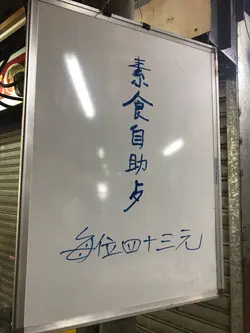 素食自助歺
每位四十三元